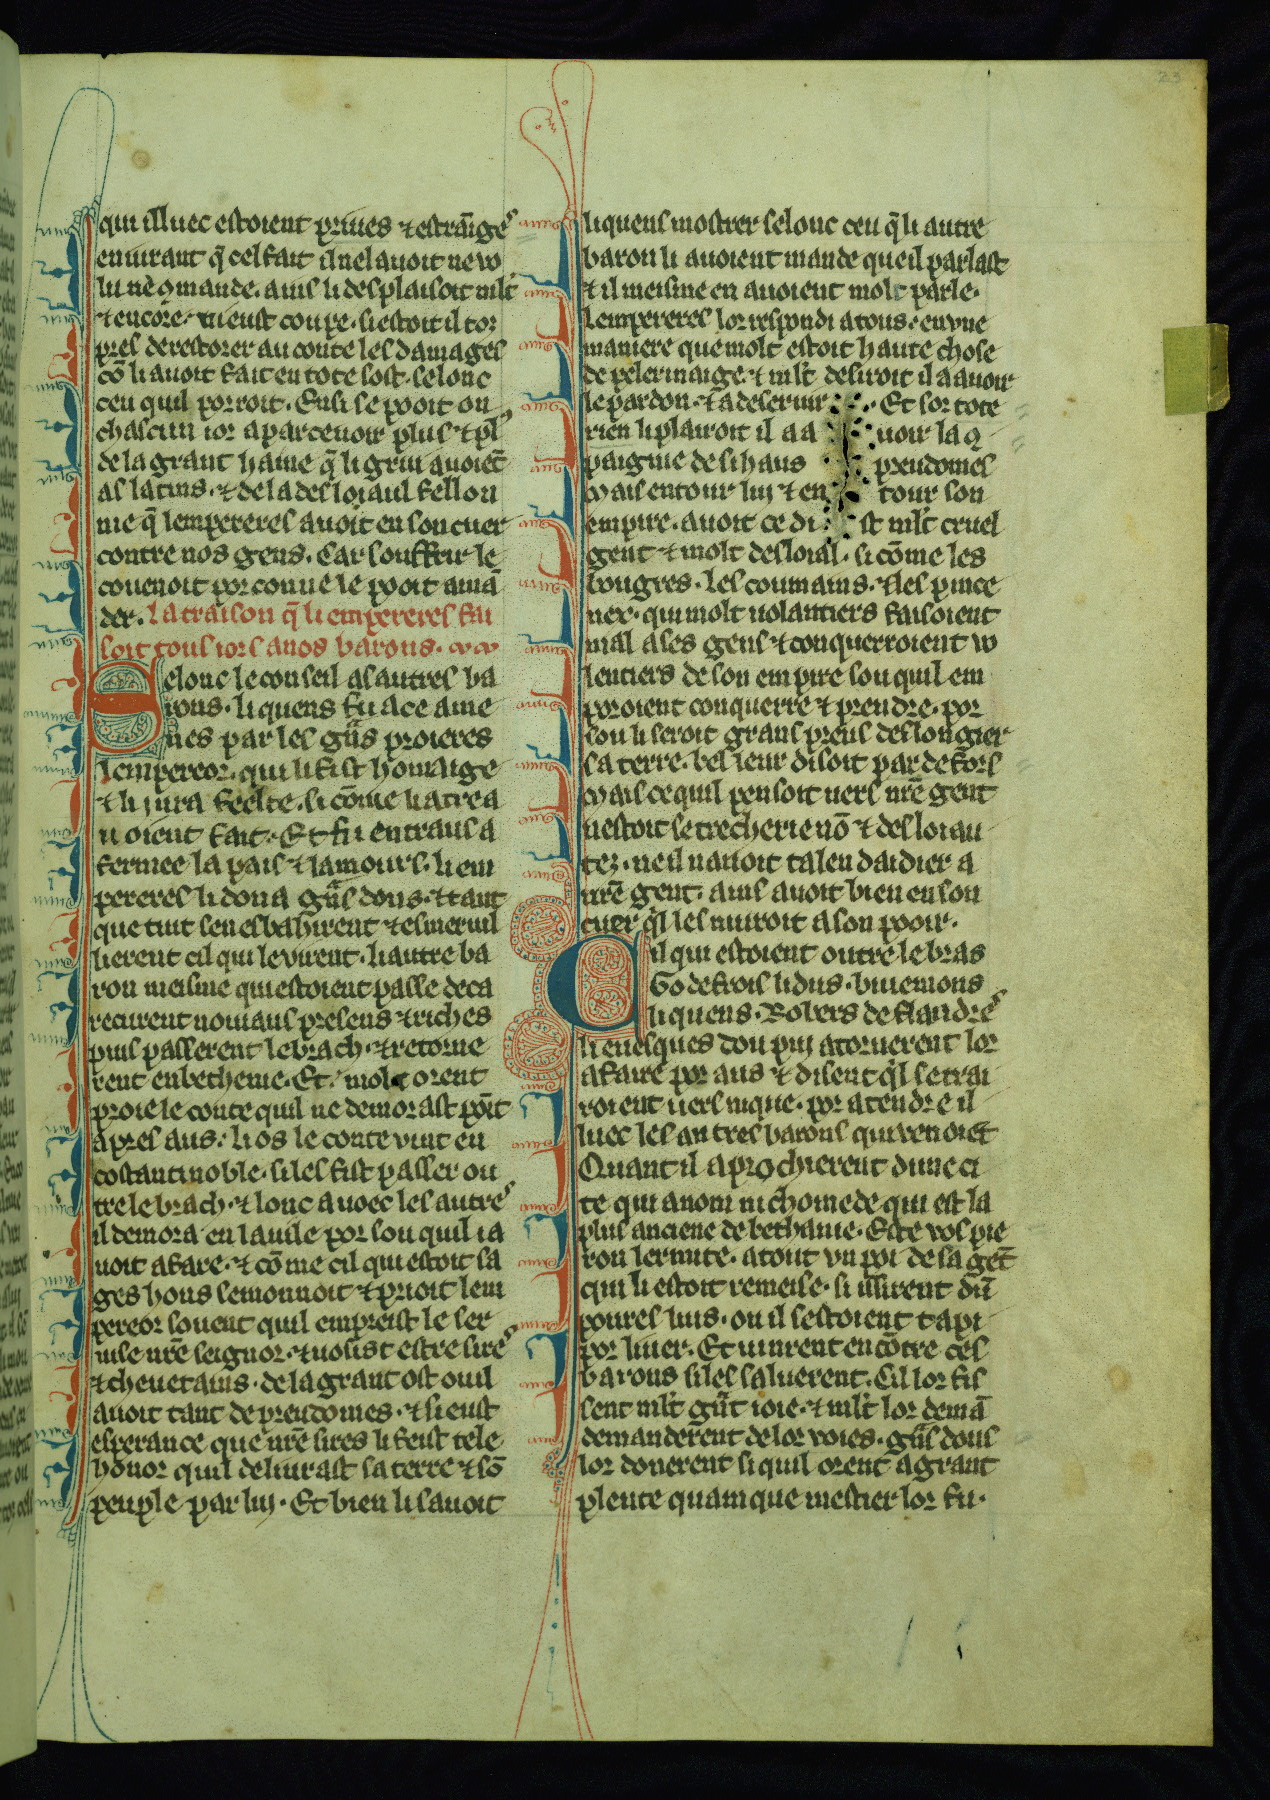 qui illuec estoient priues ⁊ estrãiges
en iurant q̃ cel fait il nel auoit ne vo
lu ne ꝯmande. ains li desplaisoit mlt̃
⁊ encore. ni eust coupe. si estoit il tor
pres de restorer au conte les damages
cõ li auoit fait en tote sost. selonc
ceu quil porroit. Ensi se pooit on
chascun ior aparceuoir plus ⁊ pl9
de la grant haine q̃ li griu auoiẽt
as latins. ⁊ de la desloiaul fellon
nie q̃ lempereres auoit en son cuer
contre nos gens. Car souffrir le
couenoit por con ne le pooit amã
der. La traison q̃ li empereres fai
soit tous iors a nos barons.
Selonc le conseil as autres ba
rons. li quens fu ace ame
nes par les grãs proieres
lempereor. qui li fist homaige
⁊ li iura feelte. si cõme li atre a
uoient fait. Et fu entraus a
fermee la pais ⁊ lamours. li em
pereres li dona grãs dons. ⁊ tant
que tuit sen esbahirent ⁊ esmeruil
lierent cil qui le virent. li autre ba
ron meisme qui estoient passe deca
recurent nouiaus presens ⁊ riches
puis passerent le brach. ⁊ retorne
rent en betheme. Et. molt orent
proie le conte quil ne demorast poĩt
apres aus. li os le conte vint en
costantinoble. si les fist passer ou
tre le brach. ⁊ lonc auoec les autres
il demora en la uile por sou quil ia
uoit afare. ⁊ cõme cil qui estoit sa
ges hons semonnoit ⁊ prioit lem
pereor souent quil empreist le ser
uise nr̃e seignor. ⁊ uolist estre sires
⁊ cheuetains. de la grant ost ou il
auoit tant de preudomes. ⁊ si eust
esperance que nr̃e sires li feist tele
honor quil deliurast sa terre ⁊ sõ
peuple par luj. Et bien li sauoit
li quens mostrer selonc ceu q̃ li autre
baron li auoient mande que il parlast
⁊ il meisme en auoient molt parle.
Lempereres lor respondi a tous. en vne
maniere que molt estoit haute chose
de pelerinaige. ⁊ mlt̃ desiroit il a auoir
le pardon. ⁊ a deseruir. Et sor tote
rien li plairoit il a a uoir la ꝯ
paignie de si haus preudomes
Mais entour luj ⁊ en tour son
empire. auoit ce di st mlt̃ cruel
gent ⁊ molt desloial. si cõme les
bougres. les coumains. ⁊ les pince
nex. qui molt uolantiers faisoient
mal a ses gens ⁊ conquerroient vo
lentiers de son empire sou quil em
poroient conquerre ⁊ prendre. por
sou li seroit grans preus deslongier
sa terre. bel leur disoit par defors
Mais ce quil pensoit uers nr̃e gent
nestoit se trecherie nõ ⁊ desloiau
tez. ne il nauoit talen daidier a
nr̃e gent. ains auoit bien en son
cuer q̃l les nuiroit a son pooir.
Cil qui estoient outre le bras
Godefrois li dus. buiemons
li quens. Robers de flandres
li euesques dou puj atornerent lor
afaire por aus ⁊ disent q̃l se trai
roient uers nique. por atendre il
luec les autres barons qui venoiẽt
Quant il aprochierent dune ci
te qui a nom nichomede qui est la
plus anciene de bethanie. Este vos pie
ron lermite. a tout vn poi de sa gẽt
qui li estoit remeise. si issirent dũ
poures luis. ou il sestoient tapi
por liuer. Et uinrent encõtre ces
barons si les saluerent. Cil lor fis
sent mlt̃ grãt ioie. ⁊ mlt̃ lor demã
demanderent de lor voies. grãs dons
lor donerent si quil orent a grant
plente quamque mestier lor fu.